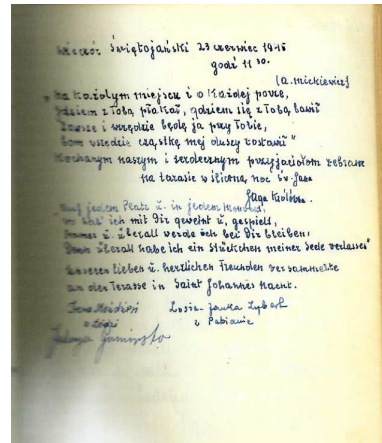 Wieczór Świętojański 23 czerwiec 1945
godz 11 30.
(A. Mickiewicz)
"Na każdym miejscu i o każdej porze,
Gdziem z Tobą płakał, gdziem się z Tobą bawił
Zawsze i wszędzie będę ja przy Tobie,
Bom wszędzie cząstkę mej duszy zostawił"
Kochanym naszym i serdecznym przyjaciołom zebrane
na tarasie w śliczną noc Św. Jana
Jaga
Auf jedem Platz u. in jedem
wo hab' ich mit Dir geweint u. gespielt,
Immer u. überall werde ich bei Dir bleiben,
Denn überall habe ich ein Stückchen meiner Seele verlassen"
Unseren lieben u. herzlichen Freunden versammelte
an der Terasse in Saint Johannes Nacht.
Irena
z Łodzi
Zosia - Janka
z Pabianic
Jadwiga